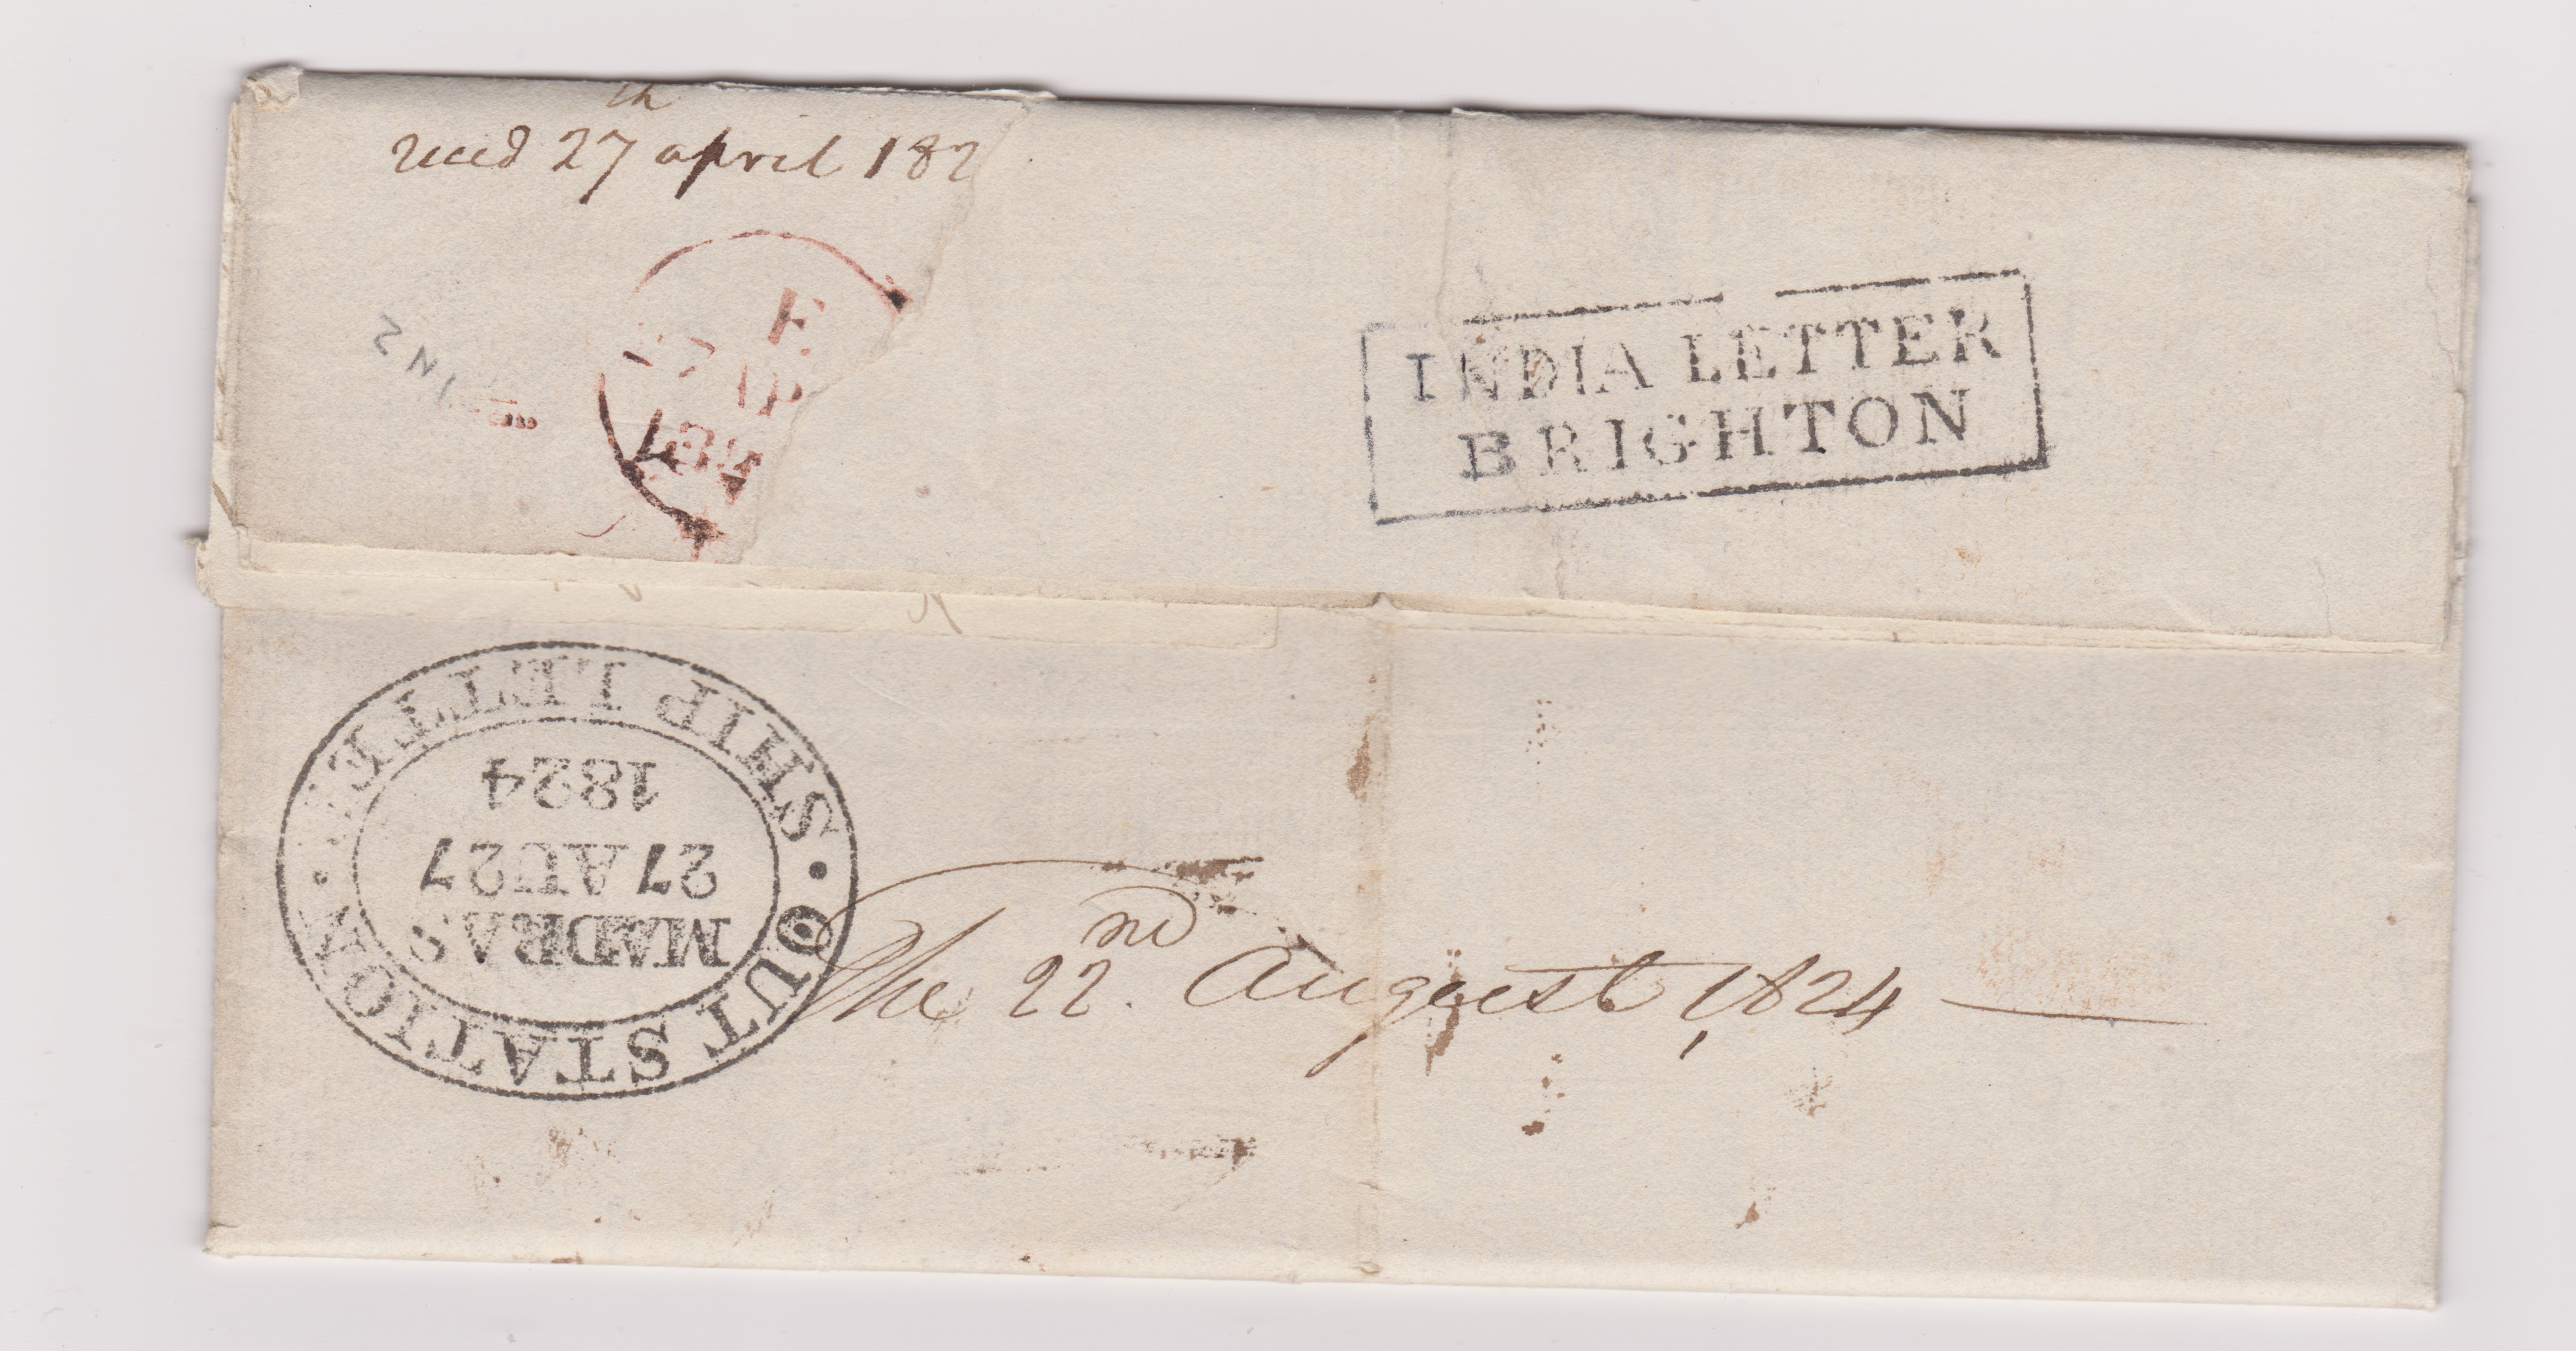 recd 27th april 182
F
27 AP
182
INDIA LETTER
BRIGHTON
OUT STATION · SHIP LETTER ·
MADRAS
27 AU 27
1824
The 22nd. August, 1824